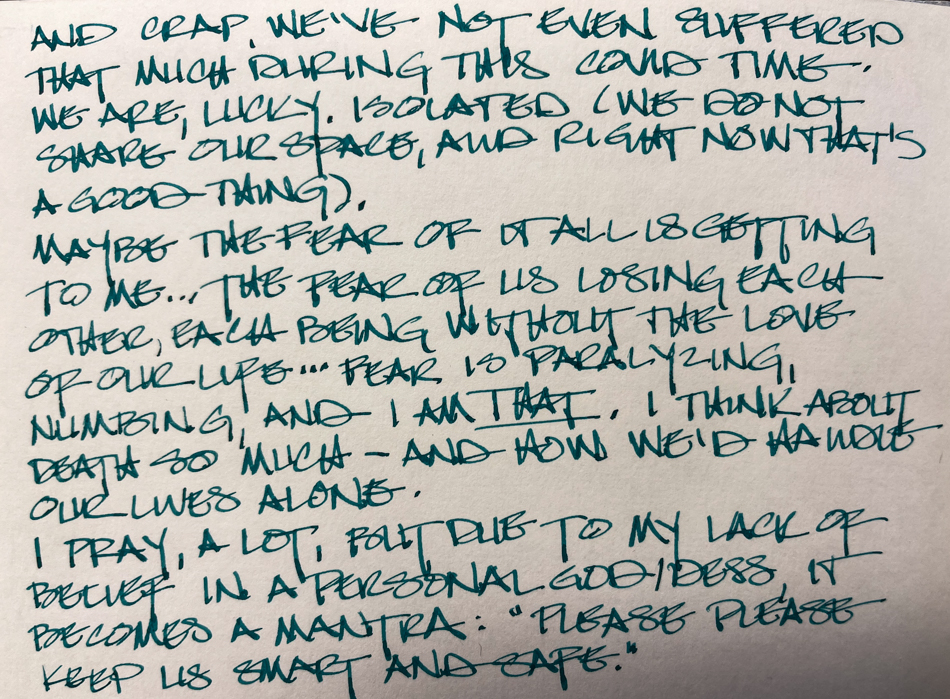 AND CRAP, WE'VE NOT EVEN SUFFERED
THAT MUCH DURING THIS COVID TIME.
WE ARE, LUCKY. ISOLATED (WE DO NOT
SHARE OUR SPACE, AND RIGHT NOW THAT'S
A GOOD THING).
MAYBE THE FEAR OF IT ALL IS GETTING
TO ME... THE FEAR OF US LOSING EACH
OTHER, EACH BEING WITHOUT THE LOVE
OF OUR LIFE... FEAR IS PARALYZING,
NUMBING, AND I AM THAT. I THINK ABOUT
DEATH SO MUCH - AND HOW WE'D HANDLE
OUR LIVES ALONE.
I PRAY, A LOT, BUT DUE TO MY LACK OF
BELIEF IN A PERSONAL GOD/DESS, IT
BECOMES A MANTRA: "PLEASE PLEASE
KEEP US SMART AND SAFE."